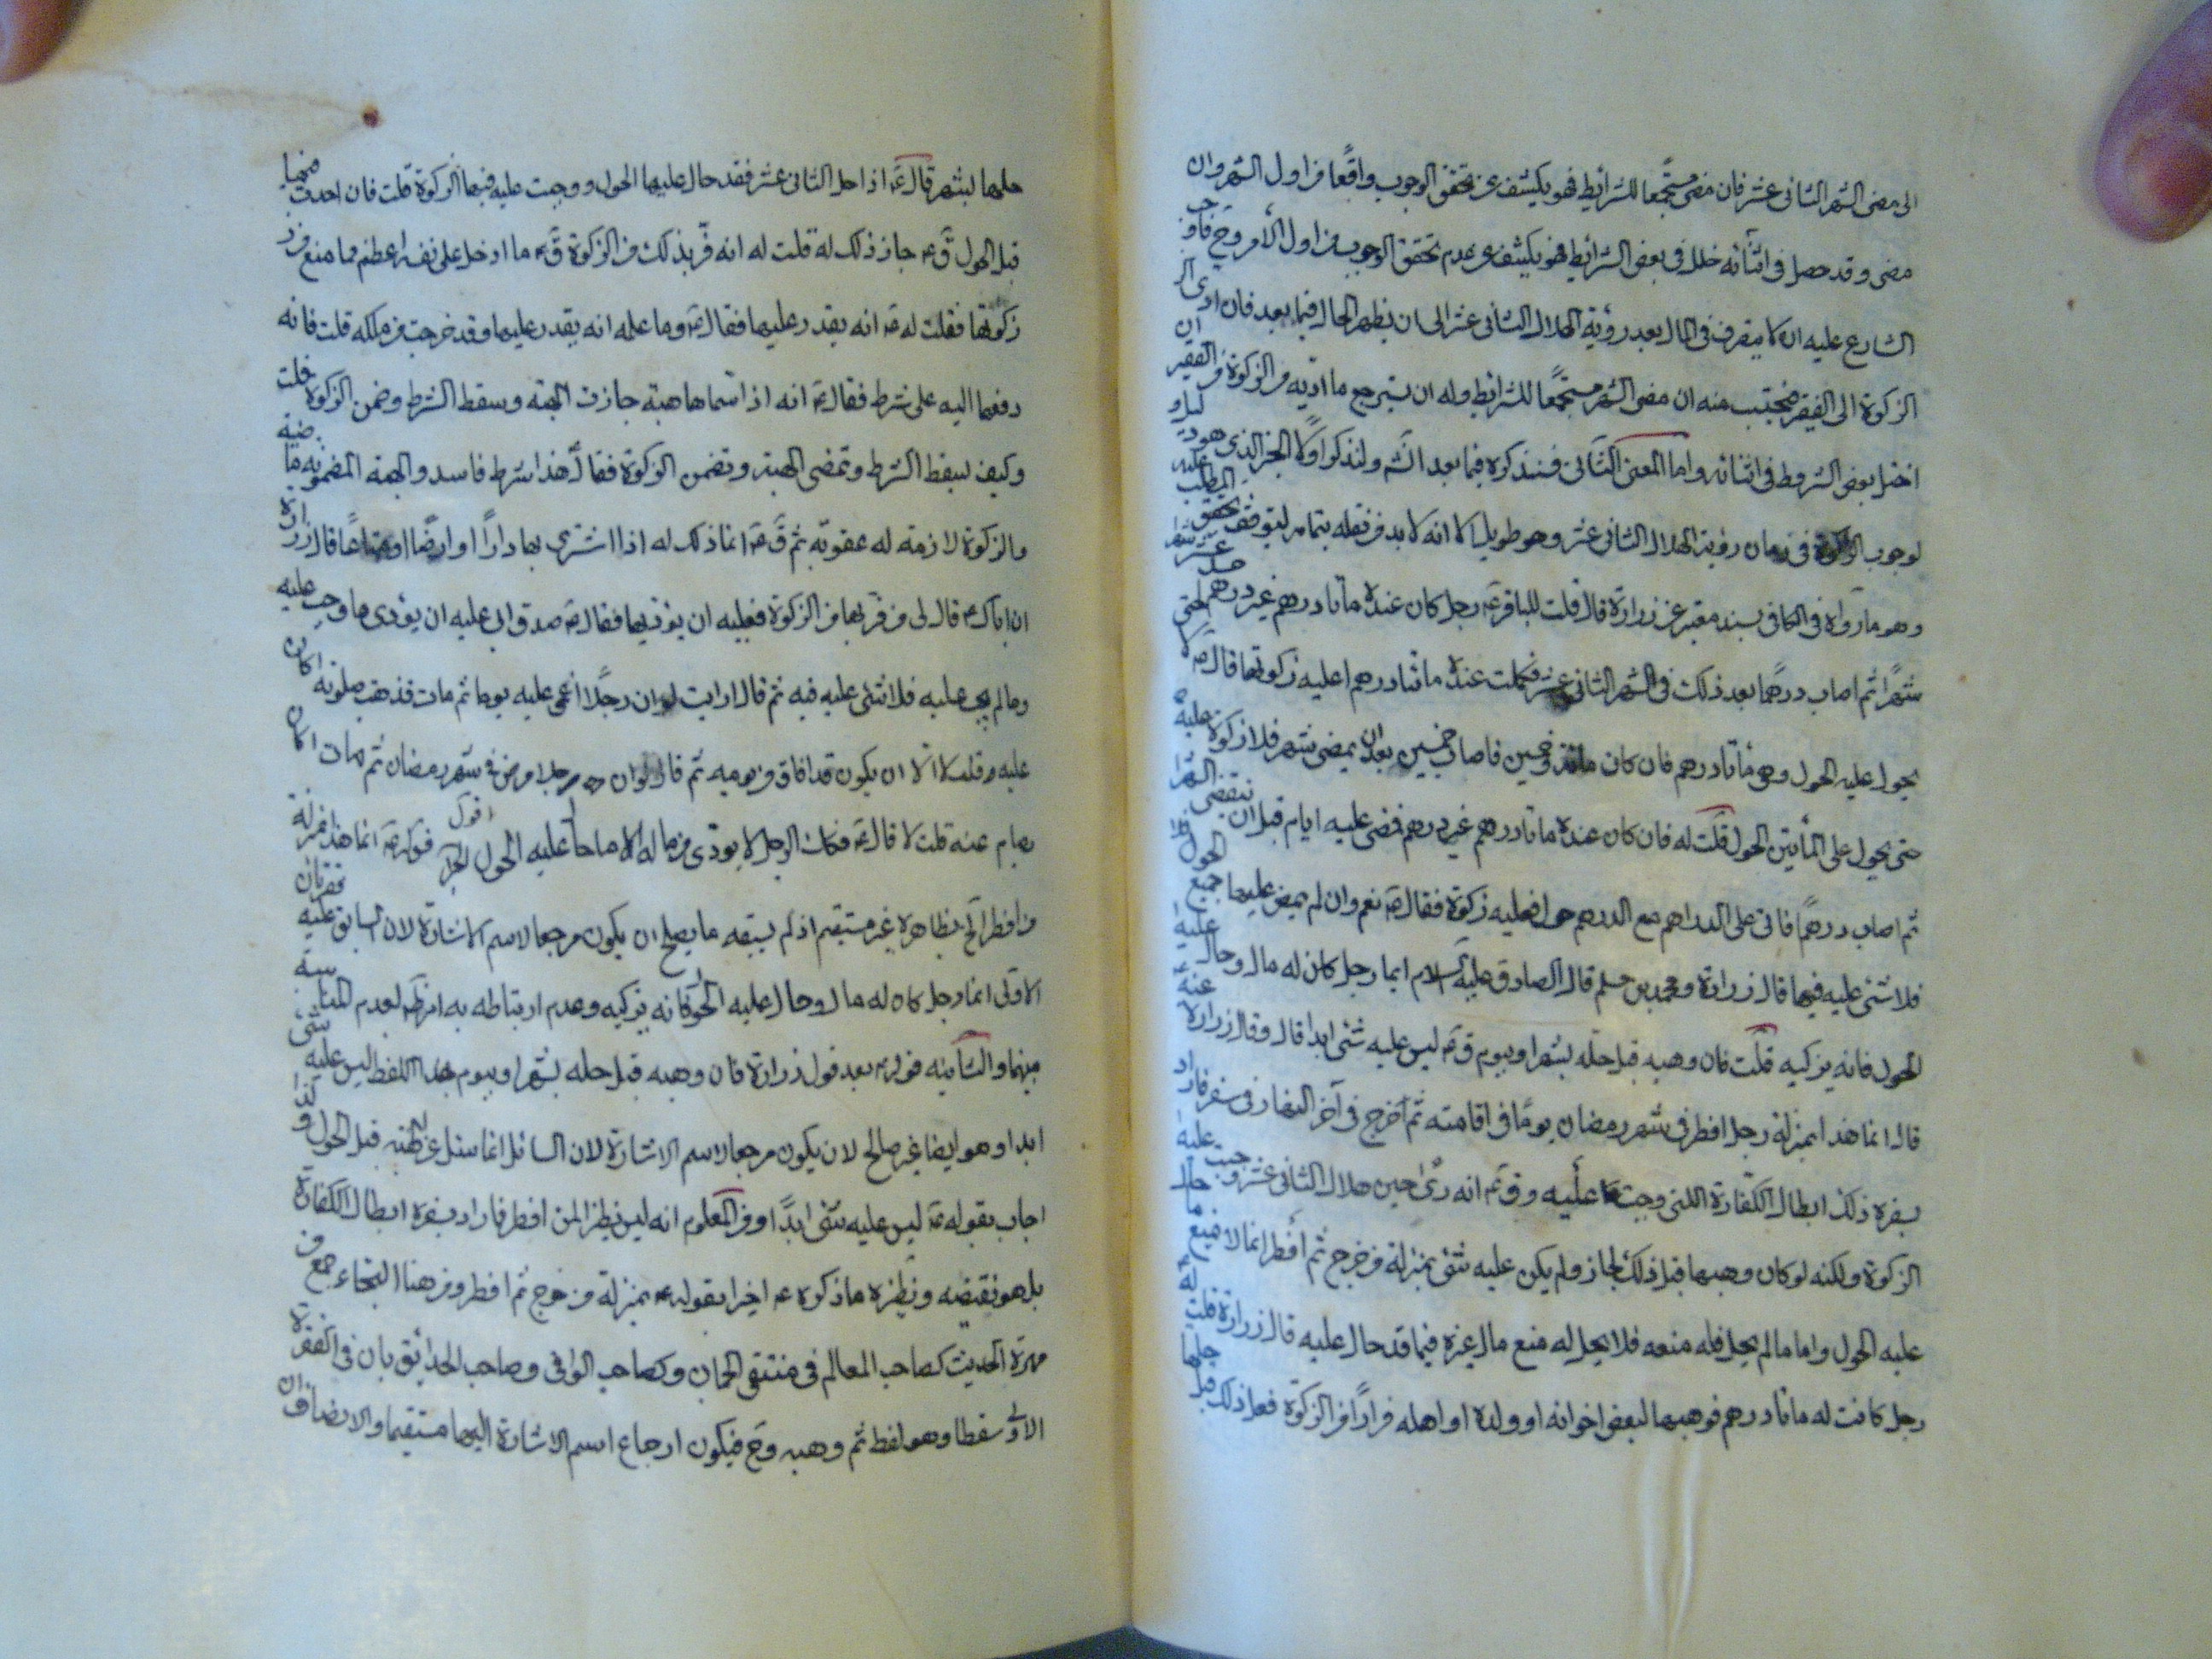 الى مضى الشهر الثانى عشر فان مضى مستجمعا للشرائط فهو يكشف عن تحقق الوجوب واقعًا من اول الشهر وان
مضى وقد حصل فى اثنائه خلل فى بعض الشرائط فهو يكشف عن عدم تحقق الوجوب من اول الأمر وح فاوجب
الشارع عليه ان لا يتصرف فى المال بعد رؤية الهلال الثانى عشر الى ان يظهر الحال فيما بعد فان ادى
الزكوة الى الفقير فيحتسب منه ان مضى الشهر مستجمعًا للشرائط وله ان يسترجع ما اديه من الزكوة من الفقير ان
اختل بعض الشروط فى اثنائه واما المعنى الثانى فسنذكره فيما بعد انشَم ولنذكر اولًا الخبر الذى هو دليل
لوجوب الزكوة فى زمان رؤية الهلال الثانى عشر وهو طويل الا انه لا بد من نقله بتمامه ليتوقف تحقق المطلب عليه
وهو ما رواه فى الكافى بسند معتبر عن زرارة قال قلت للباقر عَ رجل كان عنده مائتا درهم غير درهم احد عشر
شهرًا ثم اصاب درهمًا بعد ذلك فى الشهر الثانى عشر فكملت عنده مائتا درهم اعليه زكوتها قال عَ لا حتى
يحول عليه الحول وهى مأتا درهم فان كان مائة وخمسين فاصاب خمسين بعد ان يمضى شهر فلا زكوة عليه
حتى يحول على المأتين الحول قلت له فان كان عنده مائتا درهم غير درهم فمضى عليه ايام قبل ان ينقضى الشهر
ثم اصاب درهمًا فاتى على الدراهم مع الدرهم حول افعليه زكوة فقال عَ نعم وان لم يمض عليها جميع الحول
فلا شئى عليه فيها قال زرارة ومحمد بن مسلم قال الصادق عليه السلام ايما رجل كان له مال وحال عليه
الحول فانه يزكيه قلت فان وهبه قبل حله بشهر او بيوم قَ عَ ليس عليه شئى ابدا قال وقال زرارة عنه
قال انما هذا بمنزلة رجل افطر فى شهر رمضان يومًا فى اقامته ثم اخرج فى آخر النهار فى سفر فاراد
بسفره ذلك ابطال الكفارة اللتى وجبت عليه وقَ عَ انه رئى حين هلال الثانى عشر وجبت عليه
الزكوة ولكنه لو كان وهبها قبل ذلك لجاز ولم يكن عليه شئى بمنزلة من خرج ثم افطر انما لا يمنع ما حال
عليه الحول واما ما لم يحل فله منعه فلا يحل له منع مال غيره فيما قد حال عليه قال زرارة قلت له
رجل كانت له مائتا درهم فوهبها لبعض اخوانه او ولده او اهله فرارًا من الزكوة فعل ذلك قبل حلها
حلها بشهر قال عَ اذا حل الثانى عشر فقد حال عليها الحول ووجبت عليه فيها الزكوة قلت فان احدث فيها
قبل الحول قَ عَ جاز ذلك له قلت له انه فرّ بذلك من الزكوة قَ عَ ما ادخل على نفسه اعظم مما منع من
زكوتها فقلت له عَ انه يقدر عليها فقال عَ وما علمه انه يقدر عليها وقد خرجت من ملكه قلت فانه
دفعها اليه على شرط فقال عَ انه اذا سماها هبة جازت الهبة وسقط الشرط وضمن الزكوة قلت
وكيف يسقط الشرط وتمضى الهبة وتضمن الزكوة فقال هذا شرط فاسد والهبة المضمونة ماضية
والزكوة لازمة له عقوبة ثم قَ عَ انما ذلك له اذا اشترى بها دارًا او ارضًا او متاعًا قال زرارة
ان اباك عَ قال لى من فر بها من الزكوة فعليه ان يؤديها فقال عَ صدق ابى عليه ان يؤدى ما وجب عليه
وما لم يجب عليه فلا شئى عليه فيه ثم قال ارايت لو ان رجلًا اغمى عليه يوما ثم مات فذهب صلوته اكان
عليه قلت لا الا ان يكون قد افاق من يومه ثم قال لو ان رجلا مرض فى شهر رمضان ثم مات اكان
يصام عنه قلت لا قال عَ فكذلك الرجل لا يؤدى من ماله الا ما حال عليه الحول الخبر اقول قوله عَ انما هذا بمنزلة
من افطر الخ بظاهره غير مستقيم اذ لم يسبقه ما يصلح ان يكون مرجعا لاسم الاشارة لان السابق عليه فقرتان
الاولى انما رجل كان له مال وحال عليه الحول فانه يزكيه وعدم ارتباطه به اظهر لعدم المناسبة
بينهما والثانيه قوله عَ بعد قول زرارة فان وهبه قبل حله بشهر او بيوم بهذا اللفظ ليس عليه شئى
ابدا وهو ايضا غير صالح لان يكون مرجعا لاسم الاشارة لان السائل انما سئل عن هبته قبل الحول ولذا
اجاب بقوله عَ ليس عليه شئى ابدًا ومن المعلوم انه ليس نظير المن افطر فاراد بسفره ابطال الكفارة
بل هو نقيضه ونظيره ما ذكره عَ اخيرا بقوله عَ بمنزلة من خرج ثم افطر ومن هنا التجاء جمع من
مهرة الحديث كصاحب المعالم فى منتقى الجمان وكصاحب الوافى وصاحب الحدائق بان فى الفقرة
الاولى سقطا وهو لفظ ثم وهبه وح فيكون ارجاع اسم الاشارة اليها مستقيما والانصاف ان